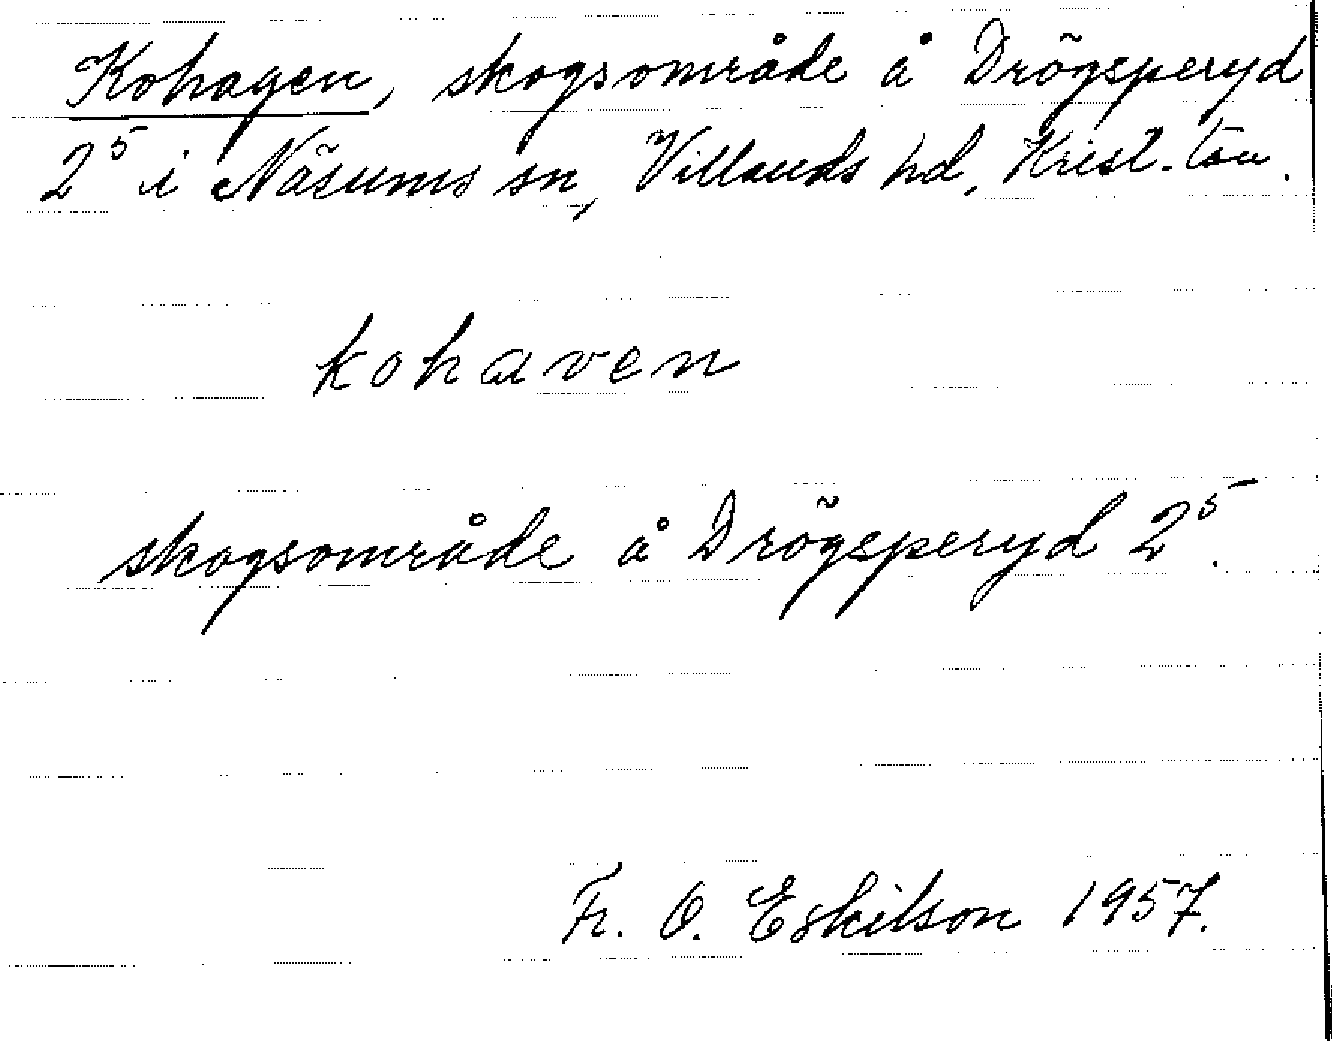 Kohagen, skogsområde å Drögsperyd
2⁵ i Näsums sn, Villands hd, Krist. län.
kohaven
skogsområde å Drögsperyd 2⁵.
Fr. O. Eskilson 1957.